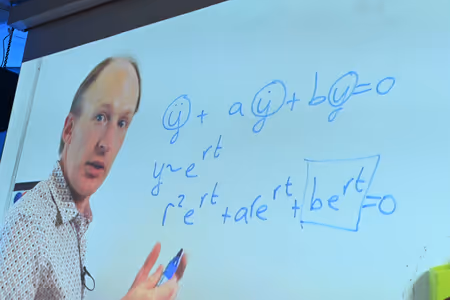 ÿ + aẏ + by = 0
y ~ e^{rt}
r²e^{rt} + are^{rt} + be^{rt} = 0